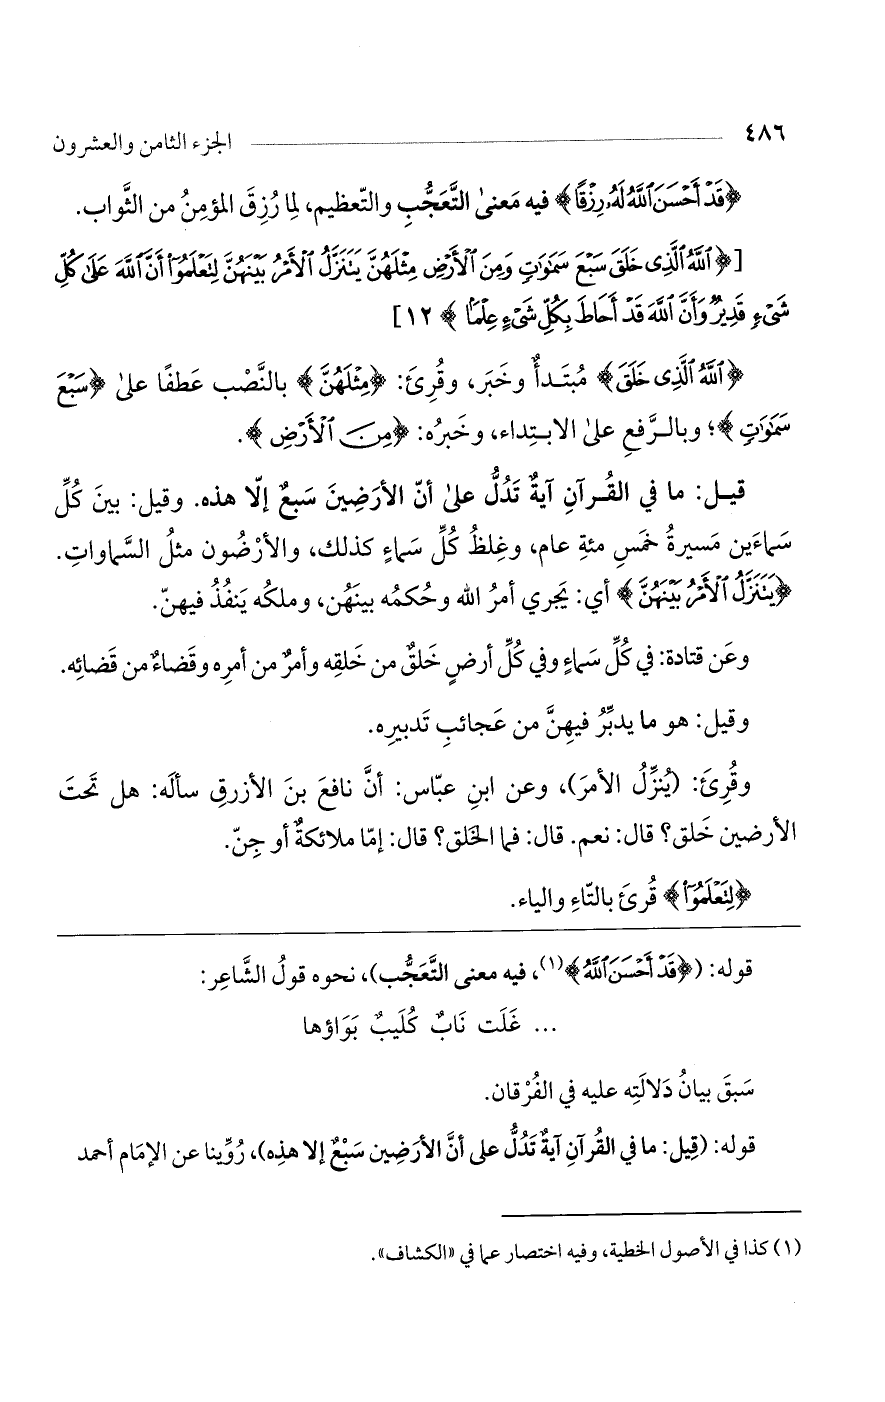 ٤٨٦ الجزء الثامن والعشرون
﴿قَدْ أَحْسَنَ ٱللَّهُ لَهُۥ رِزْقًا﴾ فيه مَعنىٰ التَّعَجُّبِ والتّعظيم، لِما رُزِقَ المؤمِنُ من الثَّواب.
[﴿ٱللَّهُ ٱلَّذِى خَلَقَ سَبْعَ سَمَٰوَٰتٍ وَمِنَ ٱلْأَرْضِ مِثْلَهُنَّ يَتَنَزَّلُ ٱلْأَمْرُ بَيْنَهُنَّ لِتَعْلَمُوٓا۟ أَنَّ ٱللَّهَ عَلَىٰ كُلِّ
شَىْءٍ قَدِيرٌ وَأَنَّ ٱللَّهَ قَدْ أَحَاطَ بِكُلِّ شَىْءٍ عِلْمًۢا﴾ ١٢]
﴿ٱللَّهُ ٱلَّذِى خَلَقَ﴾ مُبتَدأٌ وخَبَر، وقُرِئَ: ﴿مِثْلَهُنَّ﴾ بالنَّصْب عَطفًا علىٰ ﴿سَبْعَ
سَمَٰوَٰتٍ﴾؛ وبالرَّفعِ علىٰ الابتِداء، وخَبرُه: ﴿مِنَ ٱلْأَرْضِ﴾.
قيل: ما في القُرآنِ آيةٌ تَدُلُّ علىٰ أنّ الأرَضِينَ سَبعٌ إلّا هذه. وقيل: بينَ كُلِّ
سَماءَين مَسيرةُ خَمسِ مئةِ عام، وغِلظُ كُلِّ سَماءٍ كذلك، والأرْضُون مثلُ السَّماواتِ.
﴿يَتَنَزَّلُ ٱلْأَمْرُ بَيْنَهُنَّ﴾ أي: يَجري أمرُ الله وحُكمُه بينَهُن، وملكُه يَنفُذُ فيهنّ.
وعَن قتادة: في كُلِّ سَماءٍ وفي كُلِّ أرضٍ خَلقٌ من خَلقِه وأمرٌ من أمرِه وقَضاءٌ من قَضائِه.
وقيل: هو ما يدبِّرُ فيهِنَّ من عَجائبِ تَدبيرِه.
وقُرِئَ: (يُنزِّلُ الأمرَ)، وعن ابنِ عبّاس: أنَّ نافعَ بنَ الأزرقِ سألَه: هل تَحتَ
الأرضين خَلق؟ قال: نعم. قال: فما الخَلق؟ قال: إمّا ملائكةٌ أو جِنّ.
﴿لِتَعْلَمُوٓا۟﴾ قُرِئَ بالتّاءِ والياء.
قوله: (﴿قَدْ أَحْسَنَ ٱللَّهُ﴾(١)، فيه معنى التَّعَجُّب)، نحوه قولُ الشَّاعِر:
... غَلَت نَابٌ كُلَيبٌ بَوَاؤها
سَبقَ بيانُ دَلالَتِه عليه في الفُرْقان.
قوله: (قِيل: ما في القُرآنِ آيةٌ تَدُلُّ على أنَّ الأرَضِين سَبْعٌ إلا هذِه)، رُوِّينا عن الإمَام أحمد
(١) كذا في الأصول الخطية، وفيه اختصار عما في «الكشاف».